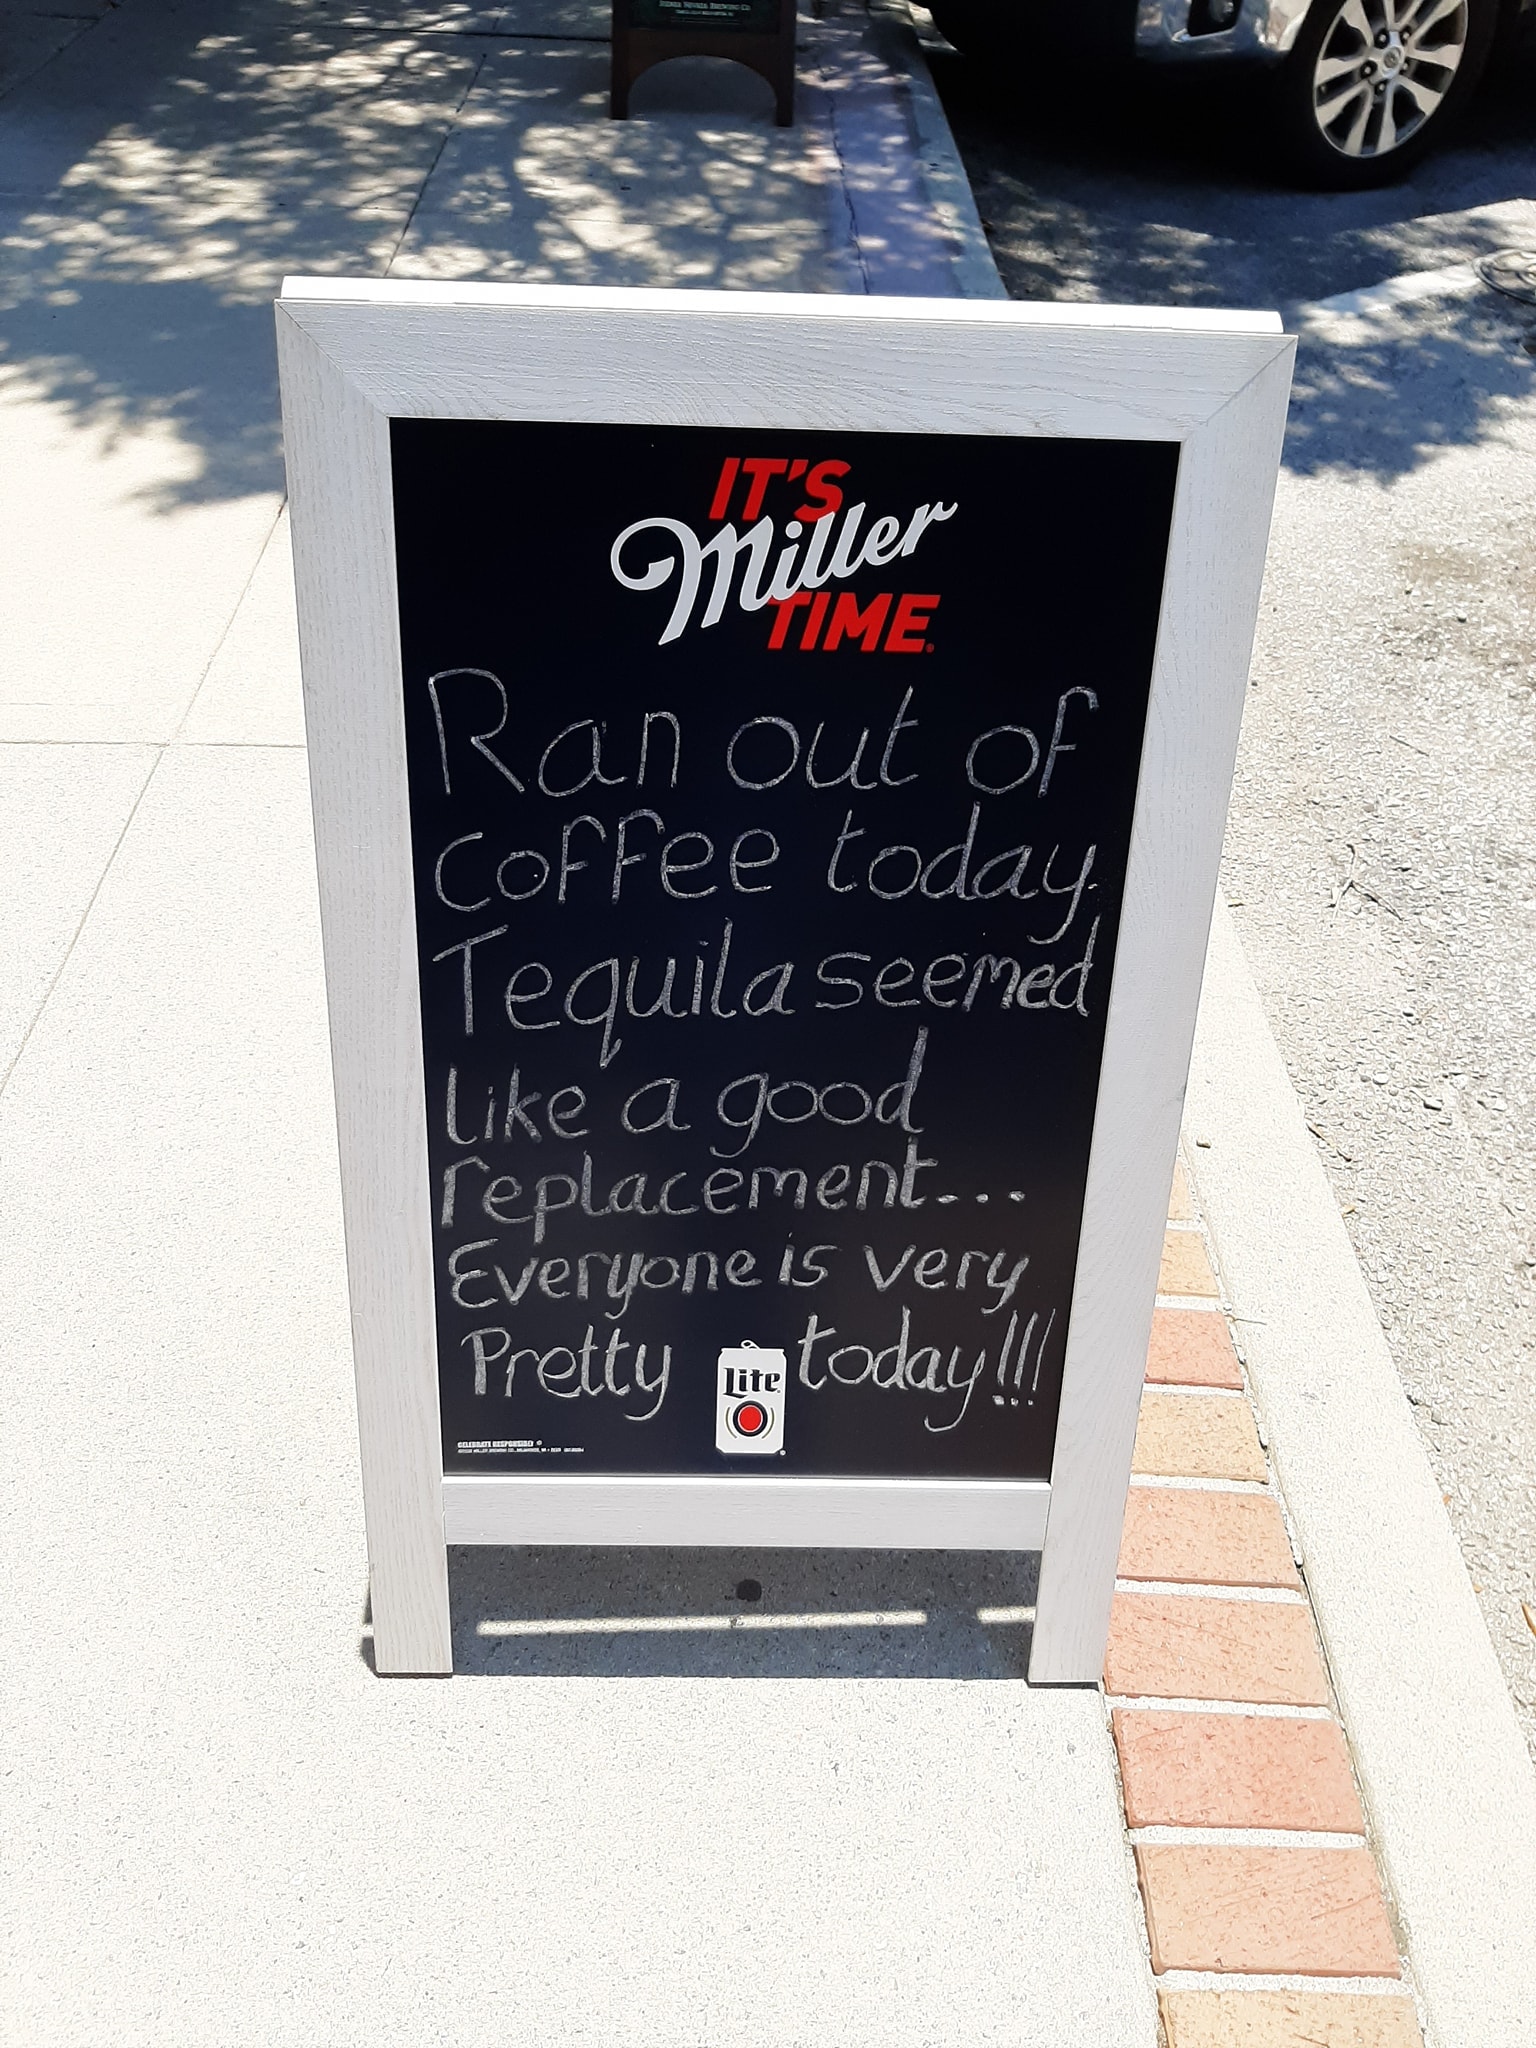 SIERRA NEVADA BREWING CO.
IT'S
Miller
TIME
Ran out of
coffee today.
Tequila seemed
like a good
replacement...
Everyone is very
Pretty today!!!
Lite
CELEBRATE RESPONSIBLY